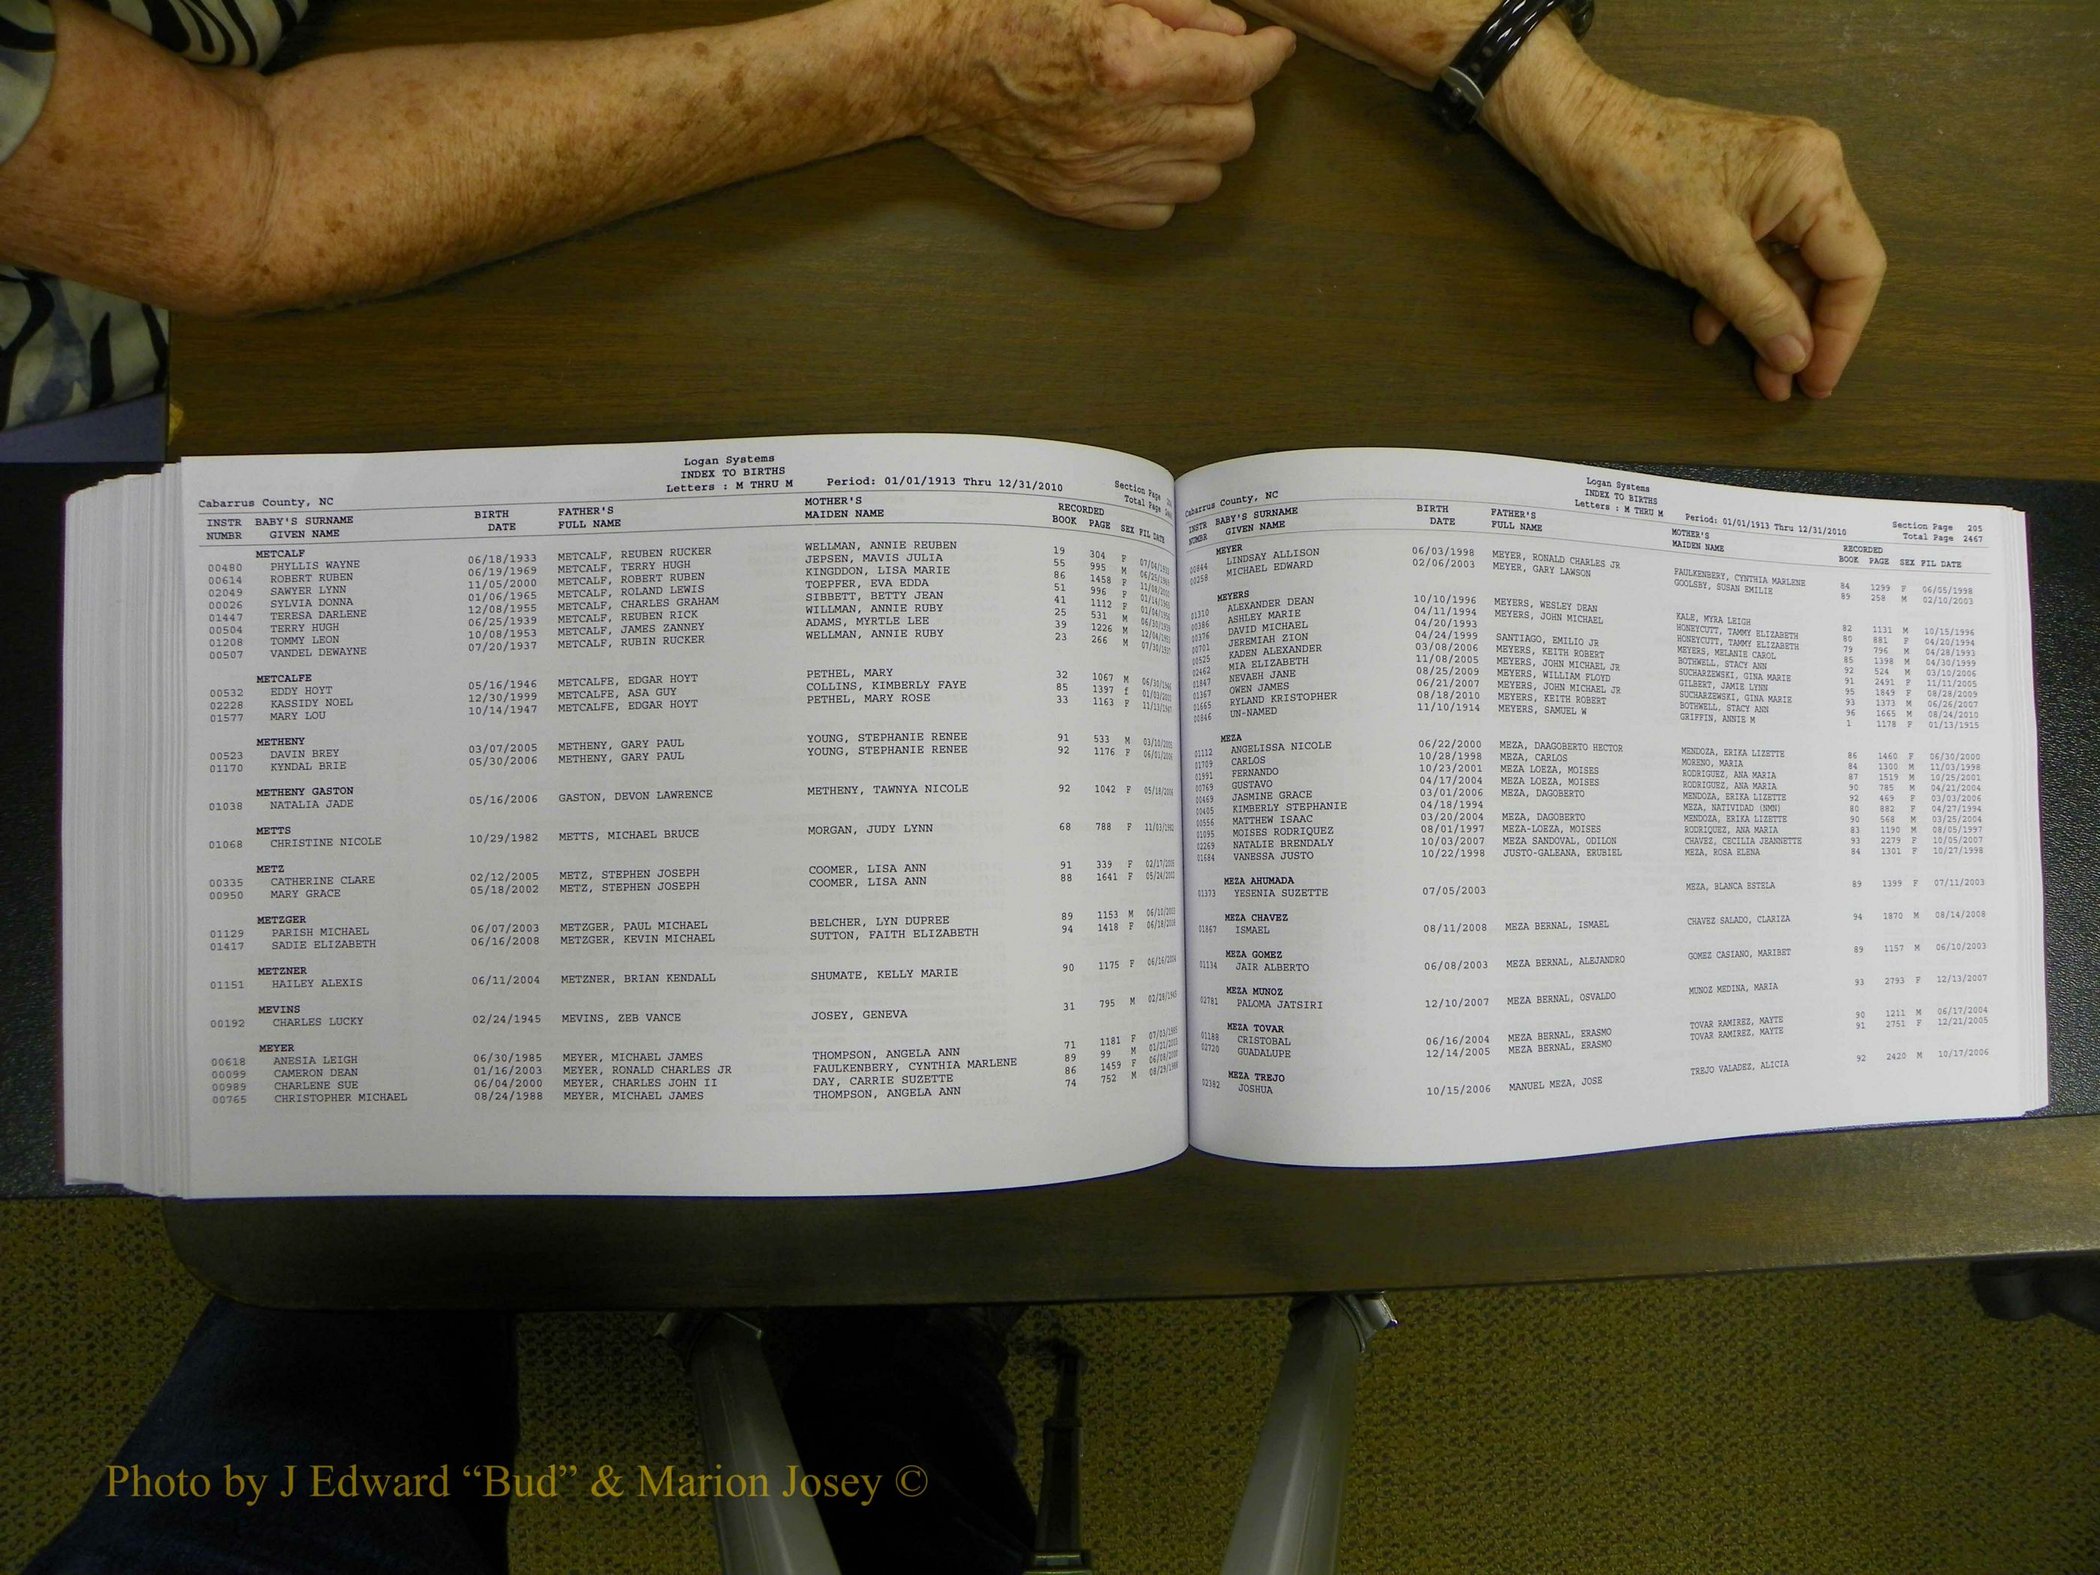 Logan Systems
INDEX TO BIRTHS
Letters : M THRU M Period: 01/01/1913 Thru 12/31/2010
Cabarrus County, NC Section Page
Total Page
INSTR BABY'S SURNAME BIRTH FATHER'S MOTHER'S RECORDED
NUMBR GIVEN NAME DATE FULL NAME MAIDEN NAME BOOK PAGE SEX FIL DATE
METCALF
00480 PHYLLIS WAYNE 06/18/1933 METCALF, REUBEN RUCKER WELLMAN, ANNIE REUBEN 19 304 F 07/04/1933
00614 ROBERT RUBEN 06/19/1969 METCALF, TERRY HUGH JEPSEN, MAVIS JULIA 55 995 M 06/25/1969
02049 SAWYER LYNN 11/05/2000 METCALF, ROBERT RUBEN KINGDDON, LISA MARIE 86 1458 F 11/08/2000
00026 SYLVIA DONNA 01/06/1965 METCALF, ROLAND LEWIS TOEPFER, EVA EDDA 51 996 F 01/14/1965
01447 TERESA DARLENE 12/08/1955 METCALF, CHARLES GRAHAM SIBBETT, BETTY JEAN 41 1112 F 01/04/1956
00504 TERRY HUGH 06/25/1939 METCALF, REUBEN RICK WILLMAN, ANNIE RUBY 25 531 M 06/30/1939
01208 TOMMY LEON 10/08/1953 METCALF, JAMES ZANNEY ADAMS, MYRTLE LEE 39 1226 M 12/04/1953
00507 VANDEL DEWAYNE 07/20/1937 METCALF, RUBIN RUCKER WELLMAN, ANNIE RUBY 23 266 M 07/30/1937
METCALFE
00532 EDDY HOYT 05/16/1946 METCALFE, EDGAR HOYT PETHEL, MARY 32 1067 M 06/30/1946
02228 KASSIDY NOEL 12/30/1999 METCALFE, ASA GUY COLLINS, KIMBERLY FAYE 85 1397 f 01/03/2000
01577 MARY LOU 10/14/1947 METCALFE, EDGAR HOYT PETHEL, MARY ROSE 33 1163 F 11/13/1947
METHENY
00523 DAVIN BREY 03/07/2005 METHENY, GARY PAUL YOUNG, STEPHANIE RENEE 91 533 M 03/10/2005
01170 KYNDAL BRIE 05/30/2006 METHENY, GARY PAUL YOUNG, STEPHANIE RENEE 92 1176 F 06/01/2006
METHENY GASTON
01038 NATALIA JADE 05/16/2006 GASTON, DEVON LAWRENCE METHENY, TAWNYA NICOLE 92 1042 F 05/18/2006
METTS
01068 CHRISTINE NICOLE 10/29/1982 METTS, MICHAEL BRUCE MORGAN, JUDY LYNN 68 788 F 11/03/1982
METZ
00335 CATHERINE CLARE 02/12/2005 METZ, STEPHEN JOSEPH COOMER, LISA ANN 91 339 F 02/17/2005
00950 MARY GRACE 05/18/2002 METZ, STEPHEN JOSEPH COOMER, LISA ANN 88 1641 F 05/24/2002
METZGER
01129 PARISH MICHAEL 06/07/2003 METZGER, PAUL MICHAEL BELCHER, LYN DUPREE 89 1153 M 06/10/2003
01417 SADIE ELIZABETH 06/16/2008 METZGER, KEVIN MICHAEL SUTTON, FAITH ELIZABETH 94 1418 F 06/18/2008
METZNER
01151 HAILEY ALEXIS 06/11/2004 METZNER, BRIAN KENDALL SHUMATE, KELLY MARIE 90 1175 F 06/16/2004
MEVINS
00192 CHARLES LUCKY 02/24/1945 MEVINS, ZEB VANCE JOSEY, GENEVA 31 795 M 02/28/1945
MEYER
00618 ANESIA LEIGH 06/30/1985 MEYER, MICHAEL JAMES THOMPSON, ANGELA ANN 71 1181 F 07/03/1985
00099 CAMERON DEAN 01/16/2003 MEYER, RONALD CHARLES JR FAULKENBERY, CYNTHIA MARLENE 89 99 M 01/21/2003
00989 CHARLENE SUE 06/04/2000 MEYER, CHARLES JOHN II DAY, CARRIE SUZETTE 86 1459 F 06/08/2000
00765 CHRISTOPHER MICHAEL 08/24/1988 MEYER, MICHAEL JAMES THOMPSON, ANGELA ANN 74 752 M 08/29/1988
Logan Systems
INDEX TO BIRTHS
Letters : M THRU M Period: 01/01/1913 Thru 12/31/2010
Cabarrus County, NC Section Page 205
Total Page 2467
INSTR BABY'S SURNAME BIRTH FATHER'S MOTHER'S RECORDED
NUMBR GIVEN NAME DATE FULL NAME MAIDEN NAME BOOK PAGE SEX FIL DATE
MEYER
00844 LINDSAY ALLISON 06/03/1998 MEYER, RONALD CHARLES JR FAULKENBERY, CYNTHIA MARLENE 84 1299 F 06/05/1998
00258 MICHAEL EDWARD 02/06/2003 MEYER, GARY LAWSON GOOLSBY, SUSAN EMILIE 89 258 M 02/10/2003
MEYERS
01310 ALEXANDER DEAN 10/10/1996 MEYERS, WESLEY DEAN KALE, MYRA LEIGH 82 1131 M 10/15/1996
00386 ASHLEY MARIE 04/11/1994 MEYERS, JOHN MICHAEL HONEYCUTT, TAMMY ELIZABETH 80 881 F 04/20/1994
00376 DAVID MICHAEL 04/20/1993 HONEYCUTT, TAMMY ELIZABETH 79 796 M 04/28/1993
00701 JEREMIAH ZION 04/24/1999 SANTIAGO, EMILIO JR MEYERS, MELANIE CAROL 85 1398 M 04/30/1999
00525 KADEN ALEXANDER 03/08/2006 MEYERS, KEITH ROBERT BOTHWELL, STACY ANN 92 524 M 03/10/2006
02462 MIA ELIZABETH 11/08/2005 MEYERS, JOHN MICHAEL JR SUCHARZEWSKI, GINA MARIE 91 2491 F 11/11/2005
01847 NEVAEH JANE 08/25/2009 MEYERS, WILLIAM FLOYD GILBERT, JAMIE LYNN 95 1849 F 08/28/2009
01367 OWEN JAMES 06/21/2007 MEYERS, JOHN MICHAEL JR SUCHARZEWSKI, GINA MARIE 93 1373 M 06/26/2007
01665 RYLAND KRISTOPHER 08/18/2010 MEYERS, KEITH ROBERT BOTHWELL, STACY ANN 96 1665 M 08/24/2010
00846 UN-NAMED 11/10/1914 MEYERS, SAMUEL W GRIFFIN, ANNIE M 1 1178 F 01/13/1915
MEZA
01112 ANGELISSA NICOLE 06/22/2000 MEZA, DAAGOBERTO HECTOR MENDOZA, ERIKA LIZETTE 86 1460 F 06/30/2000
01709 CARLOS 10/28/1998 MEZA, CARLOS MORENO, MARIA 84 1300 M 11/03/1998
01991 FERNANDO 10/23/2001 MEZA LOEZA, MOISES RODRIGUEZ, ANA MARIA 87 1519 M 10/25/2001
00769 GUSTAVO 04/17/2004 MEZA LOEZA, MOISES RODRIGUEZ, ANA MARIA 90 785 M 04/21/2004
00469 JASMINE GRACE 03/01/2006 MEZA, DAGOBERTO MENDOZA, ERIKA LIZETTE 92 469 F 03/03/2006
00405 KIMBERLY STEPHANIE 04/18/1994 MEZA, NATIVIDAD (NMN) 80 882 F 04/27/1994
00556 MATTHEW ISAAC 03/20/2004 MEZA, DAGOBERTO MENDOZA, ERIKA LIZETTE 90 568 M 03/25/2004
01095 MOISES RODRIQUEZ 08/01/1997 MEZA-LOEZA, MOISES RODRIQUEZ, ANA MARIA 83 1190 M 08/05/1997
02269 NATALIE BRENDALY 10/03/2007 MEZA SANDOVAL, ODILON CHAVEZ, CECILIA JEANNETTE 93 2279 F 10/05/2007
01684 VANESSA JUSTO 10/22/1998 JUSTO-GALEANA, ERUBIEL MEZA, ROSA ELENA 84 1301 F 10/27/1998
MEZA AHUMADA
01373 YESENIA SUZETTE 07/05/2003 MEZA, BLANCA ESTELA 89 1399 F 07/11/2003
MEZA CHAVEZ
01867 ISMAEL 08/11/2008 MEZA BERNAL, ISMAEL CHAVEZ SALADO, CLARIZA 94 1870 M 08/14/2008
MEZA GOMEZ
01134 JAIR ALBERTO 06/08/2003 MEZA BERNAL, ALEJANDRO GOMEZ CASIANO, MARIBET 89 1157 M 06/10/2003
MEZA MUNOZ
02781 PALOMA JATSIRI 12/10/2007 MEZA BERNAL, OSVALDO MUNOZ MEDINA, MARIA 93 2793 F 12/13/2007
MEZA TOVAR
01188 CRISTOBAL 06/16/2004 MEZA BERNAL, ERASMO TOVAR RAMIREZ, MAYTE 90 1211 M 06/17/2004
02720 GUADALUPE 12/14/2005 MEZA BERNAL, ERASMO TOVAR RAMIREZ, MAYTE 91 2751 F 12/21/2005
MEZA TREJO
02382 JOSHUA 10/15/2006 MANUEL MEZA, JOSE TREJO VALADEZ, ALICIA 92 2420 M 10/17/2006
Photo by J Edward “Bud” & Marion Josey ©